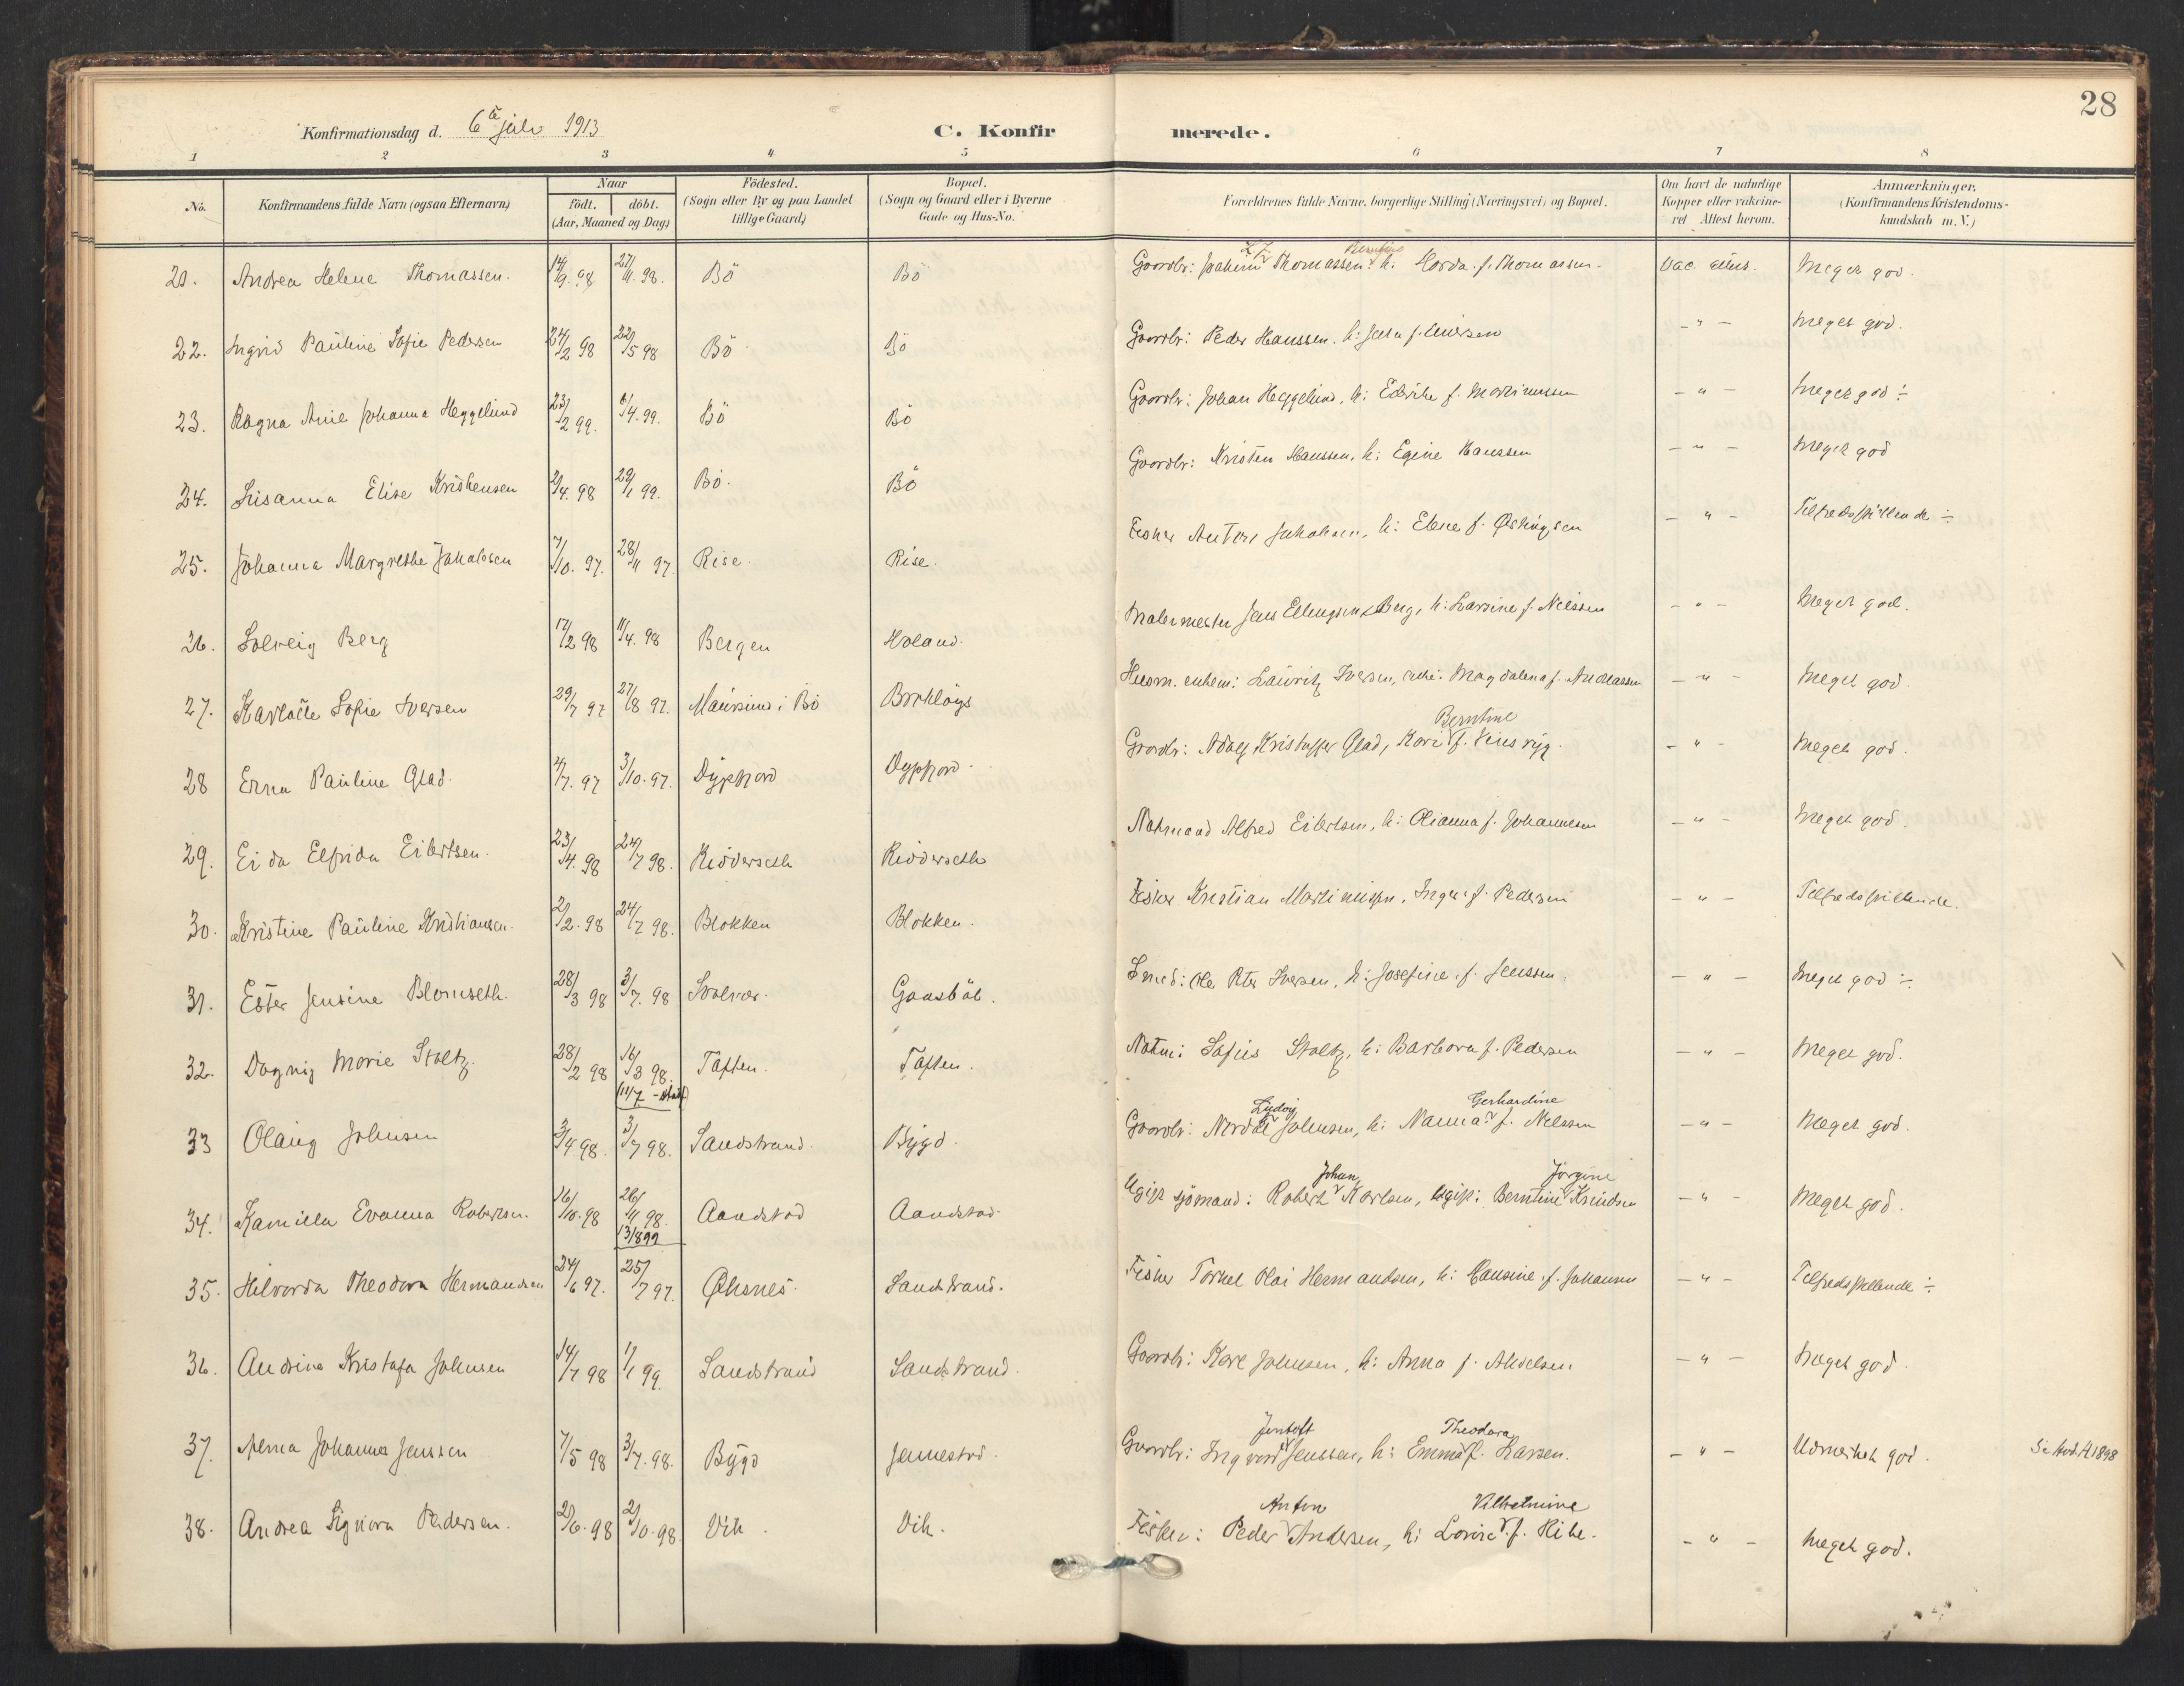 28
Konfirmationsdag d. 6te juli 1913
C. Konfirmerede.
1 2 3 4 5 6 7 8
No. Konfirmandens fulde Navn (ogsaa Efternavn) Naar födt. döbt. (Aar, Maaned og Dag) Födested. (Sogn eller By og paa Landet tillige Gaard) Bopæl. (Sogn og Gaard eller i Byerne Gade og Hus-No. Forældrenes fulde Navne, borgerlige Stilling (Næringsvei) og Bopæl. Om havt de naturlige Kopper eller vakcineret Attest herom. Anmærkninger. (Konfirmandens Kristendomskundskab m. V.)
21. Andrea Helene Thomassen. 14/9. 98 27/11. 98. Bö Bö Gaardbr: Joakim Thomassen. h. Berntine f. Thomassen. Vac. Meget god.
22. Ingrid Pauline Sofie Pedersen 24/2 98 22/5 98 Bö Bö Gaardbr: Peder Hanssen. h: f. Meget god.
23. Ragna Anie Johanna Heggelund 23/2 99. /4. 99. Bö Bö Gaardbr: Johan Heggelund, h: f. Martinussen - " - Meget god ÷
24. Susanna Elise Kristensen 2/4. 98 29/1 99. Bö. Bö Gaardbr: Kristen Hanssen, h: Egine Hanssen - " - Meget god
25. Johanna Margrethe Jakobsen 7/10. 97. 28/11 97. Rise. Rise. Fisker Anton Jakobsen, h: Elene f. - " - Tilfredsstillende ÷
26. Solveig Berg 12/2 98 11/4. 98 Bergen Holand. Malermester Jens Ellingsen Berg, h: Larsine f. Nilssen - " - Meget god.
27. Karlotte Sofie Iversen 29/7 97 27/8 97. i Bö Lauritz Iversen, Magdalena f. Andreassen - " - Meget god.
28 Erna Pauline Glad. 4/7. 97 3/10. 97. Dypfjord Dypfjord. Gaardbr: Adolf Kristoffer Glad, Kari Berntine f. - " - Meget god.
29. Eida Elfrida Eilertsen. 23/4. 98 24/7 98. Ridderseth Ridderseth Notmand Alfred Eilertsen, h: Olianna f. Johannesen - " - Meget god.
30. Kristine Pauline Kristiansen. 2/2. 98 24/7 98. Blokken Blokken. Fisker Kristian Martinussen, Inger f. Pedersen - " - Tilfredsstillende.
31. Ester Jensine Blomseth. 28/3 98 3/7. 98 Svolvær. Gaasböl. Smed: Ole Peter Iversen, h: Josefine f. Jenssen. - " - Meget god ÷
32. Dagny Marie Stoltz. 28/2 98 16/3 98. Taften. Taften. Sofus Stoltz, h: Barbora f. Pedersen - " - Meget god.
33 Olaug Johnsen 3/4 98. 3/7 98. Sandstrand. Bygd. Gaardbr: Nordal Ludvig Johnsen, h: Nanna Gerhardine f. Nilssen - " - Meget god.
34. Kamilla Evanna Robertsen. 16/10. 98 26/11 98. 13/8 99 Aandstad Aandstad. Ugift sjömand: Robert Johan Karlsen, ugift: Berntine Jörgine Knudsen - " - Meget god.
35. Halvarda Theodora Hermandsen 24/6 97. 25/7 97. Öksnes. Sandstrand. Fisker Torkel Olai Hermandsen, h: Hansine f. Johansen - " - Tilfredsstillende ÷
36. Andrine Kristofa Johnsen 14/7 98 1/1 99. Sandstrand Sandstrand. Gaardbr: Karl Johnsen, h: Anna f. Andelsen. - " - Meget god.
37. Alma Johanna Jenssen 7/5 98 3/7. 98. Bygd Jennestad. Gaardbr: Ingvard Jentoft Jenssen, h: Emma Theodora f. Larsen. - " - Udmerket god. 1898
38. Andrea Signora Pedersen. 2/6. 98 2/10. 98. Vik. Vik. Fisker: Peder Anton Andersen, h: Lovise Vilhelmine f. Ribe. - " - Meget god.